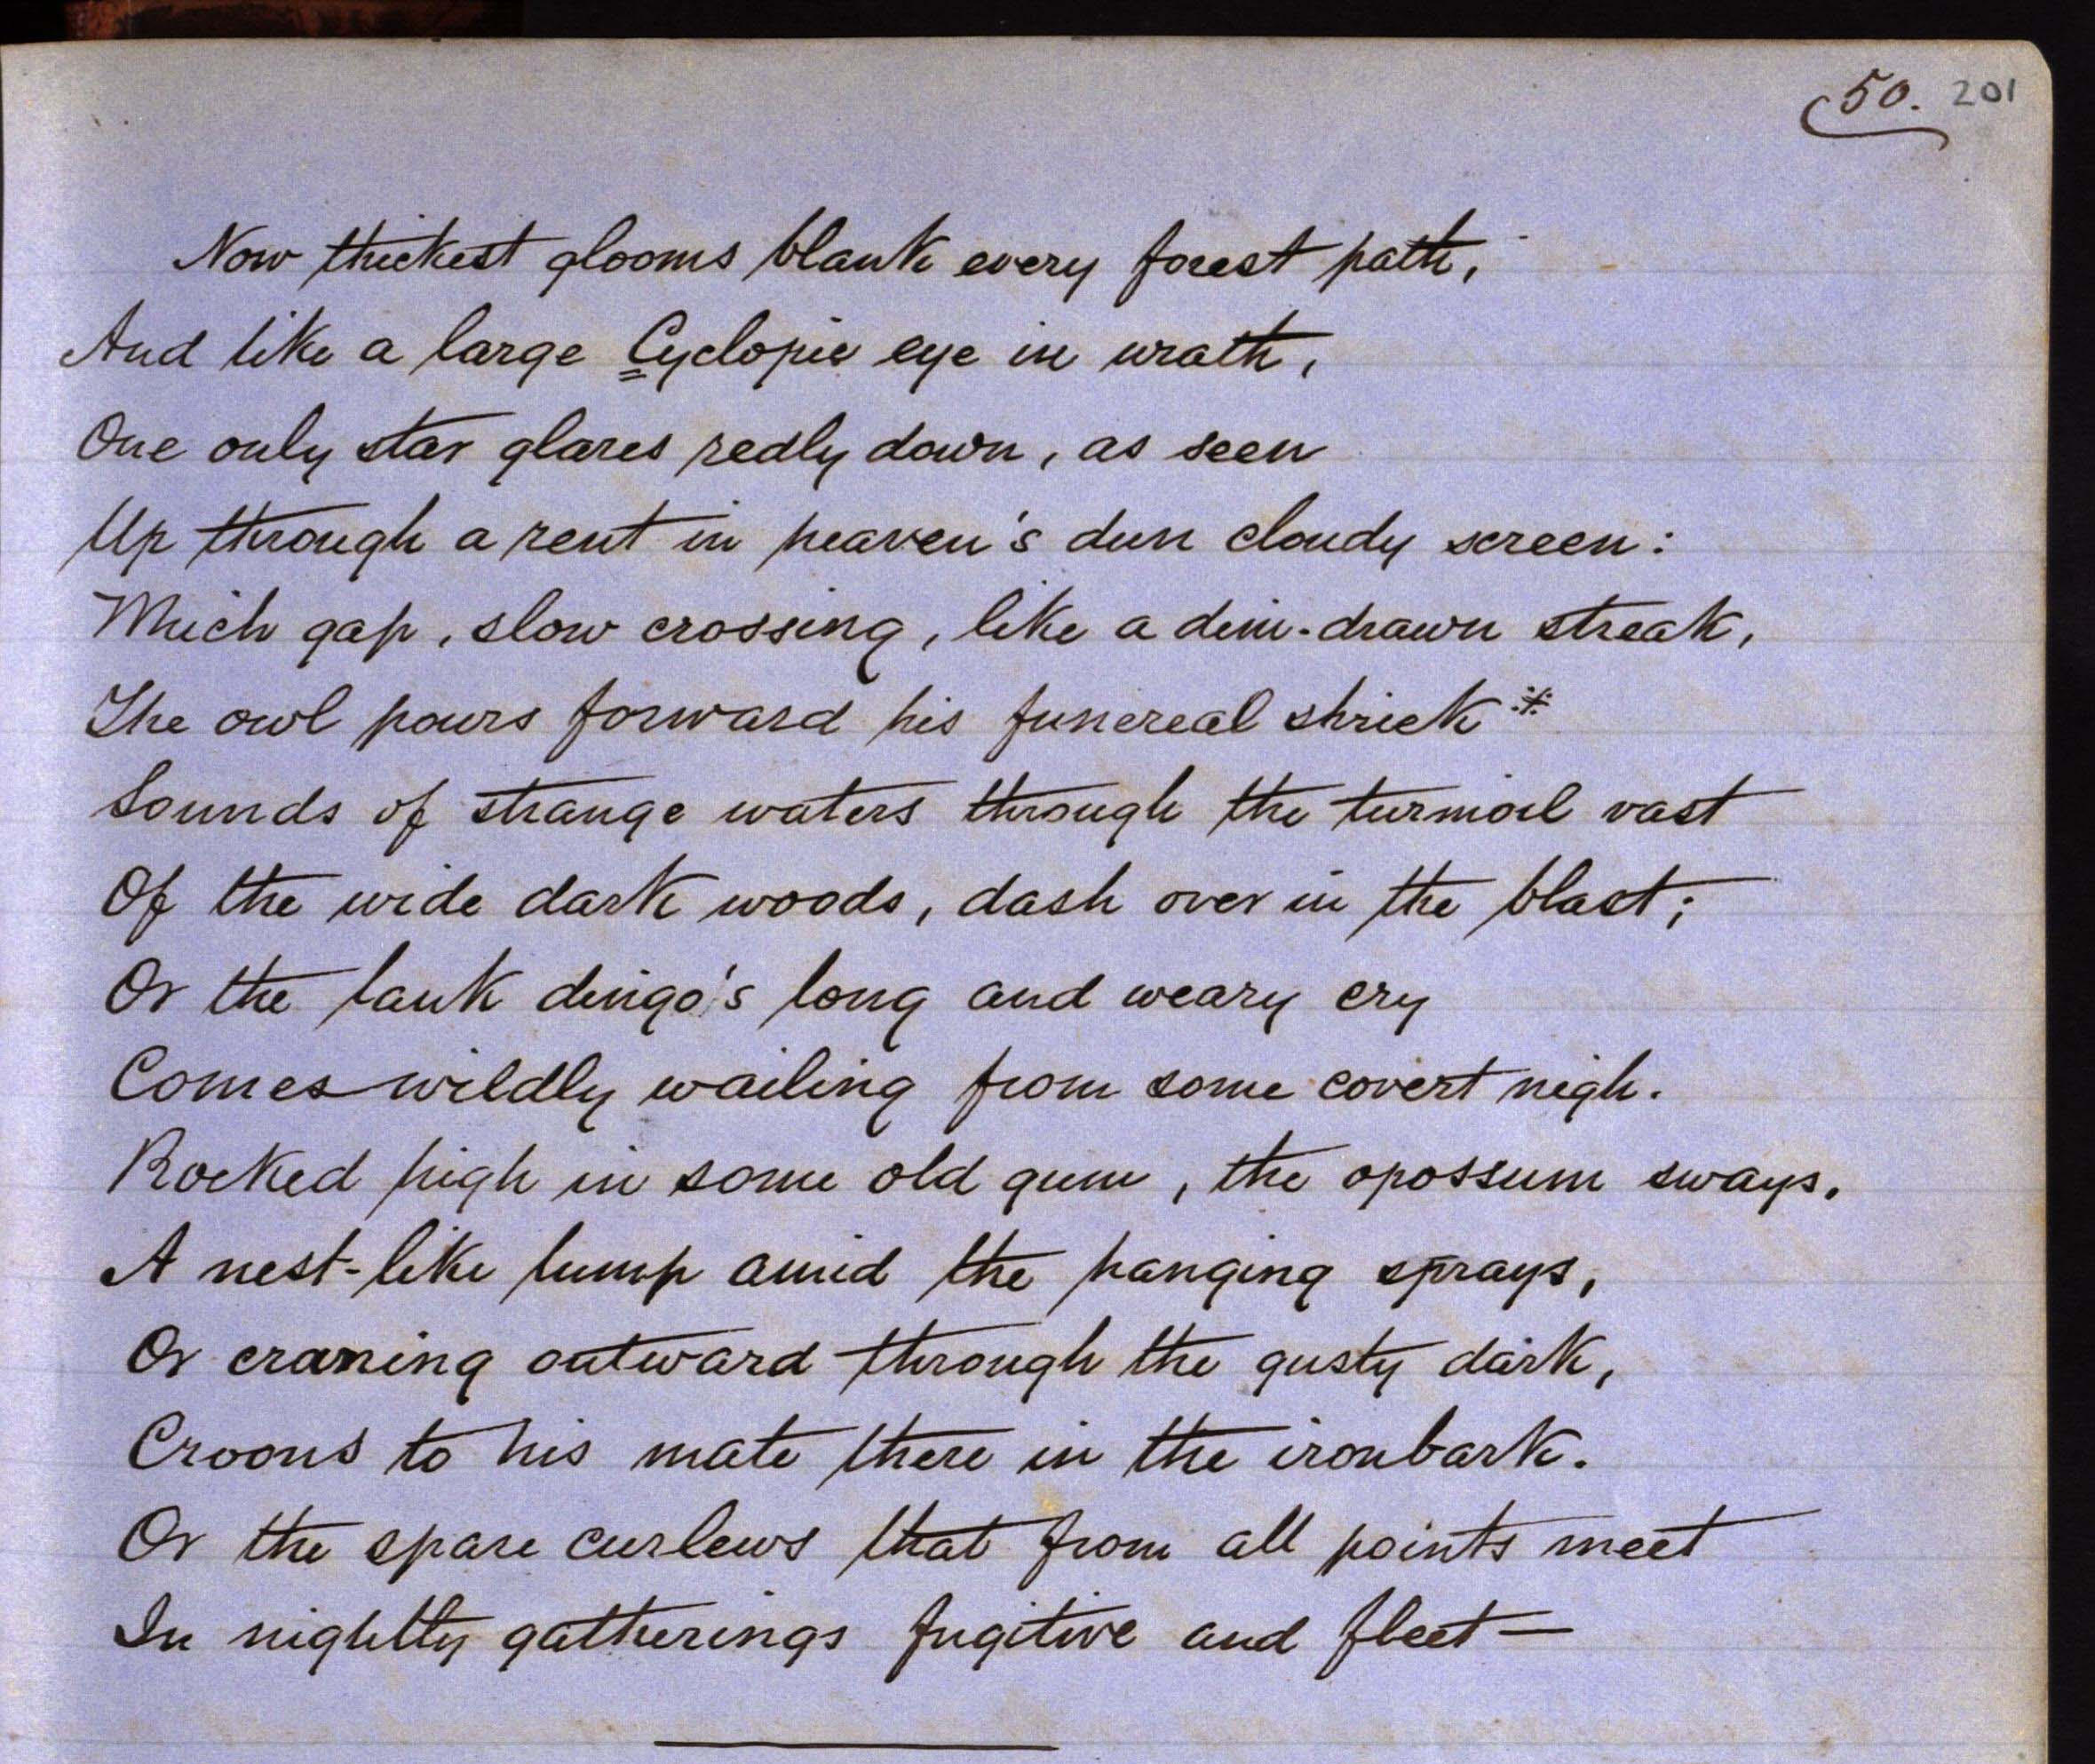 50. 201
Now thickest glooms blank every forest path,
And like a large Cyclopic eye in wrath,
One only star glares redly down, as seen
Up through a rent in heaven's dun cloudy screen:
Which gap, slow crossing, like a dim-drawn streak,
The owl pours forward his funereal shriek *
Sounds of strange waters through the turmoil vast
Of the wide dark woods, dash over in the blast;
Or the lank dingo's long and weary cry
Comes wildly wailing from some covert nigh.
Rocked high in some old gum, the opossum sways,
A nest-like lump amid the hanging sprays,
Or craning outward through the gusty dark,
Croons to his mate there in the ironbark.
Or the spare curlews that from all points meet
In nightly gatherings fugitive and fleet—